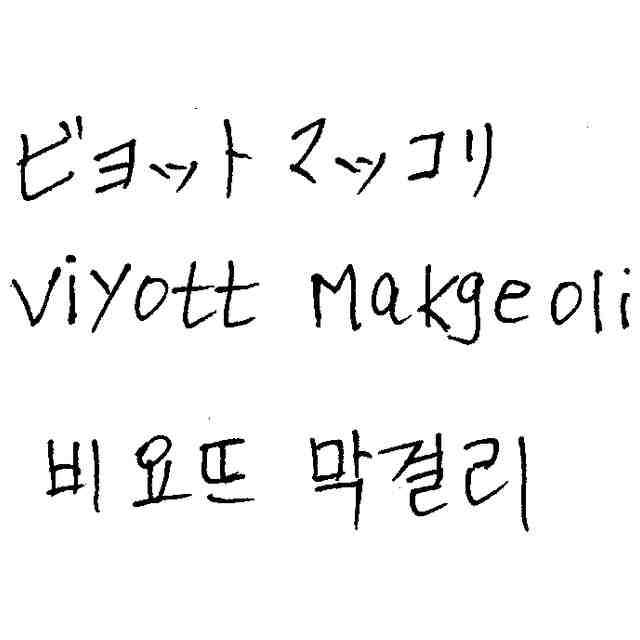 ビョット マッコリ
Viyott Makgeoli
비요뜨 막걸리